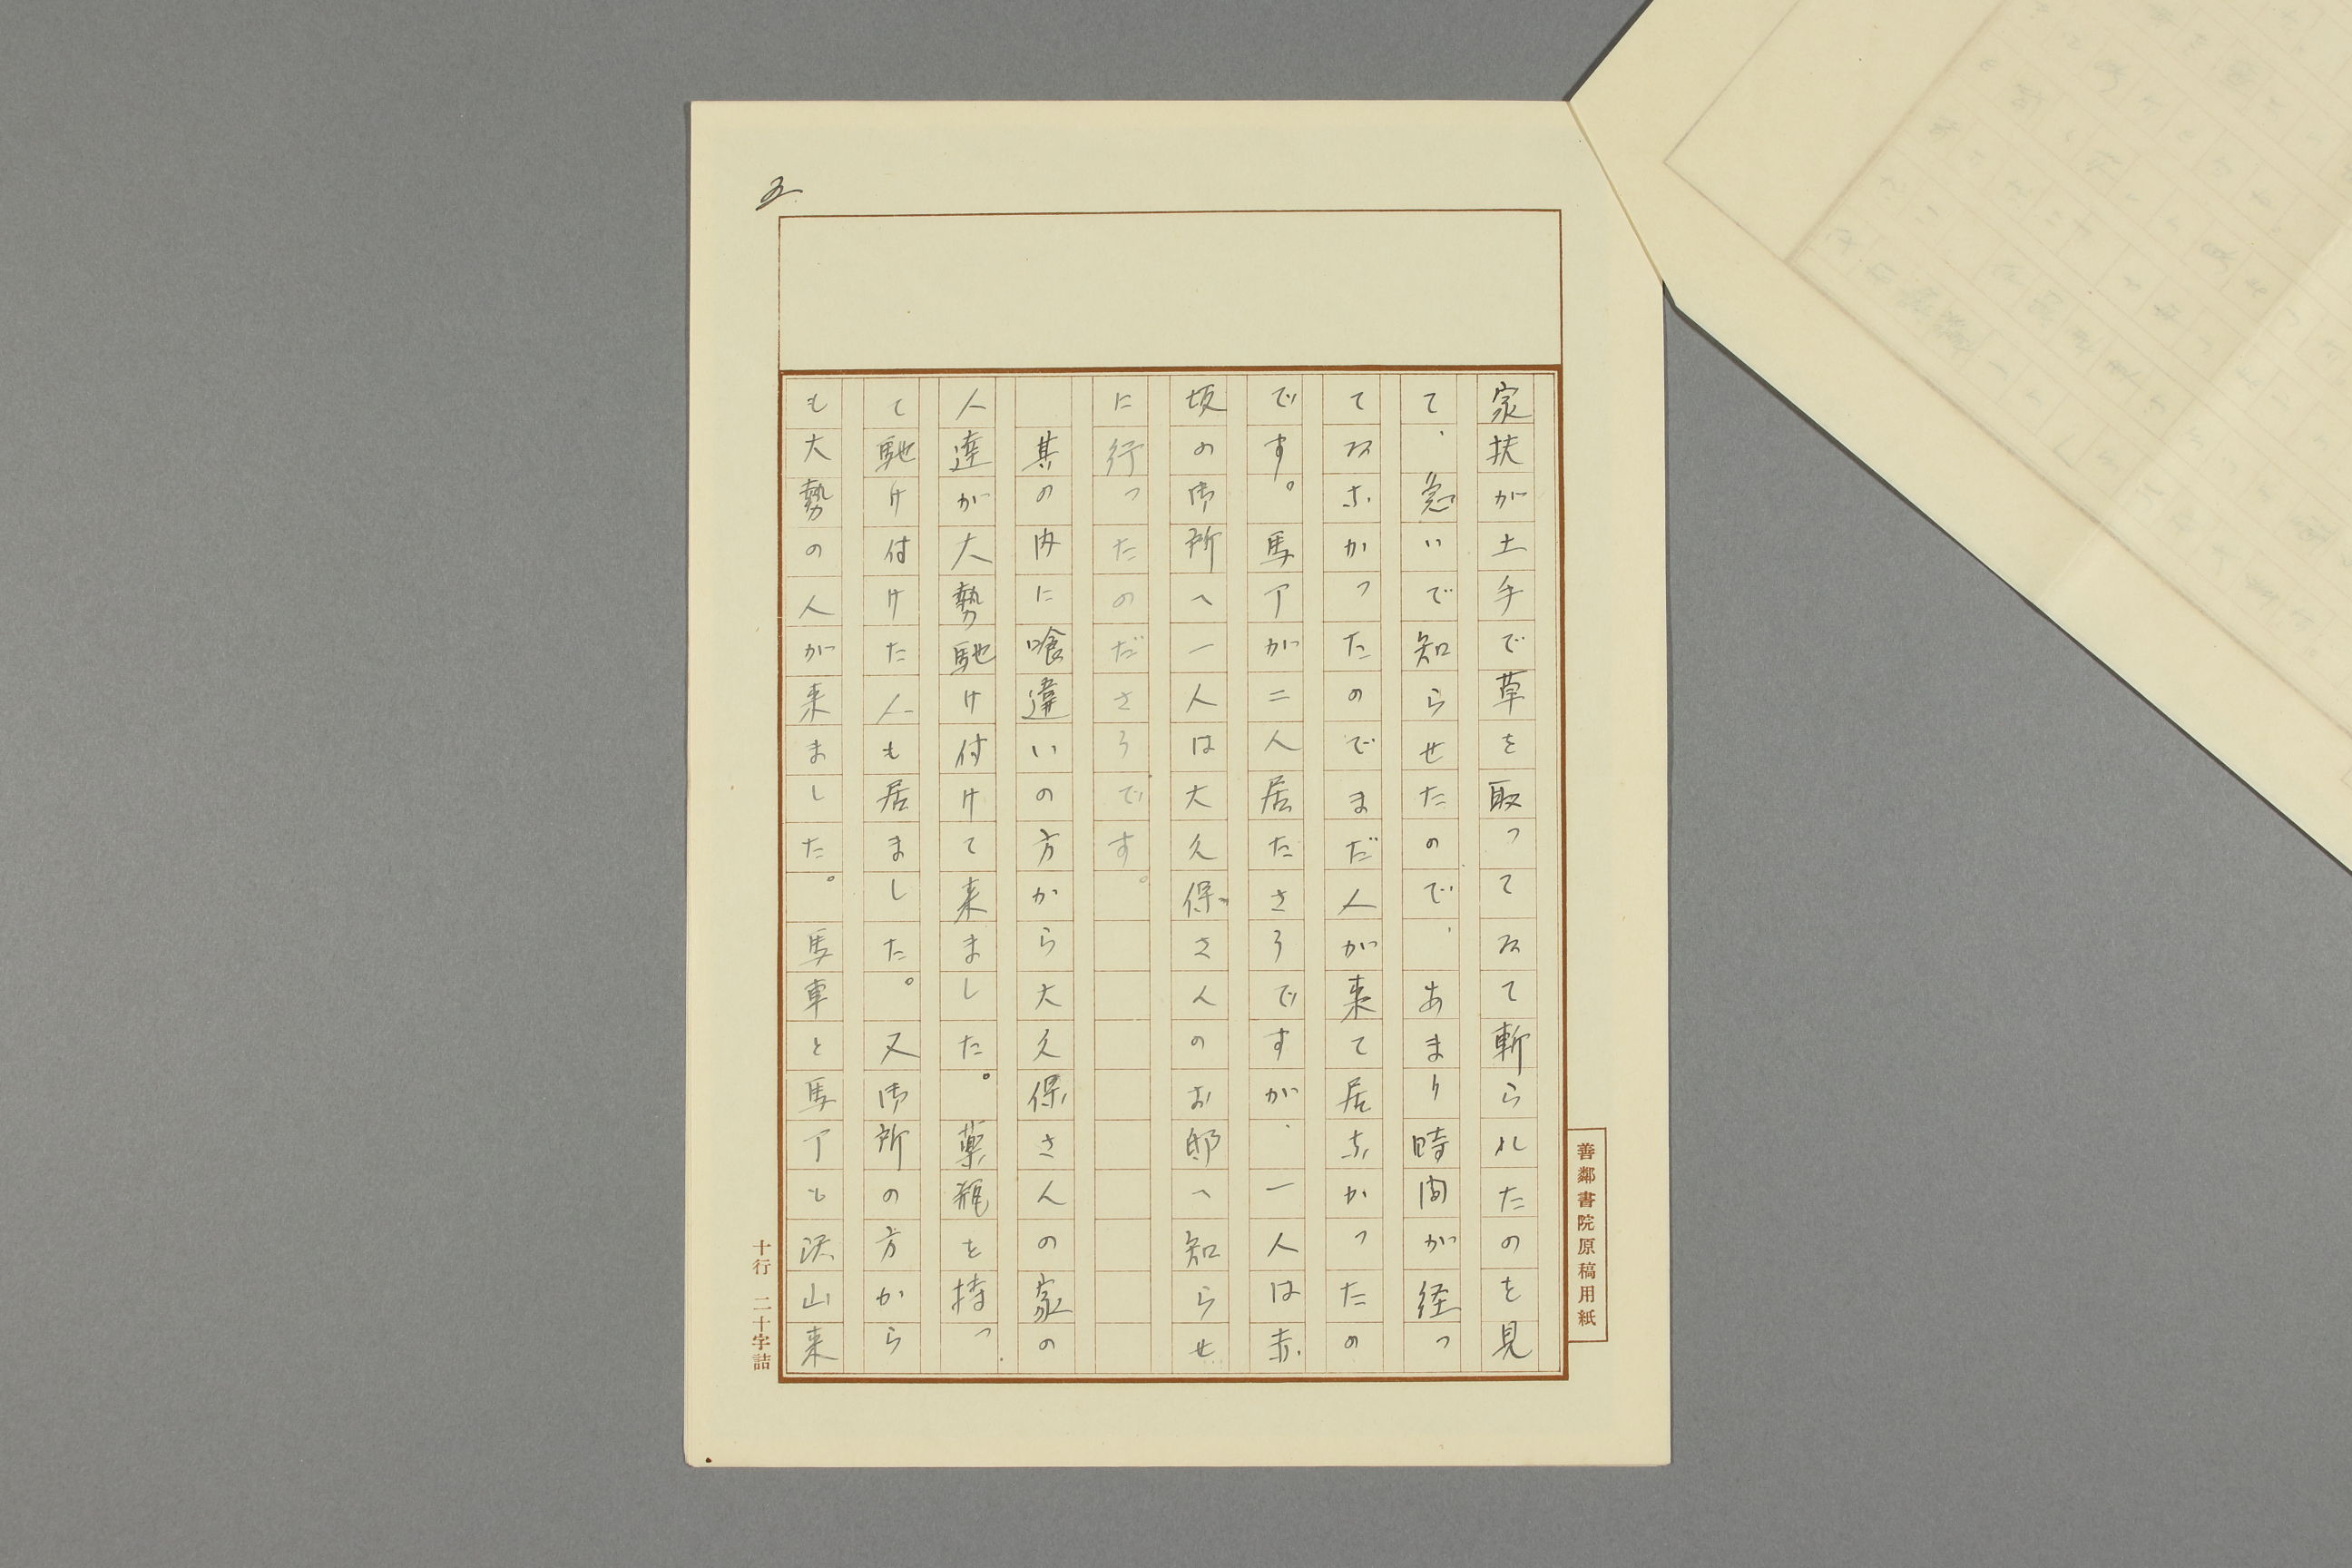 五
家扶が土手で草を取ってゐて斬られたのを見
て、急いで知らせたので、あまり時間が経っ
てゐなかったのでまだ人が来て居なかったの
です。馬丁が二人居たさうですが、一人は赤
坂の御所へ一人は大久保さんのお邸へ知らせ
に行ったのださうです。
其の内に喰違いの方から大久保さんの家の
人達が大勢馳け付けて来ました。薬瓶を持っ
て馳け付けた人も居ました。又御所の方から
も大勢の人が来ました。馬車と馬丁も沢山来
善鄰書院原稿用紙
十行 二十字詰